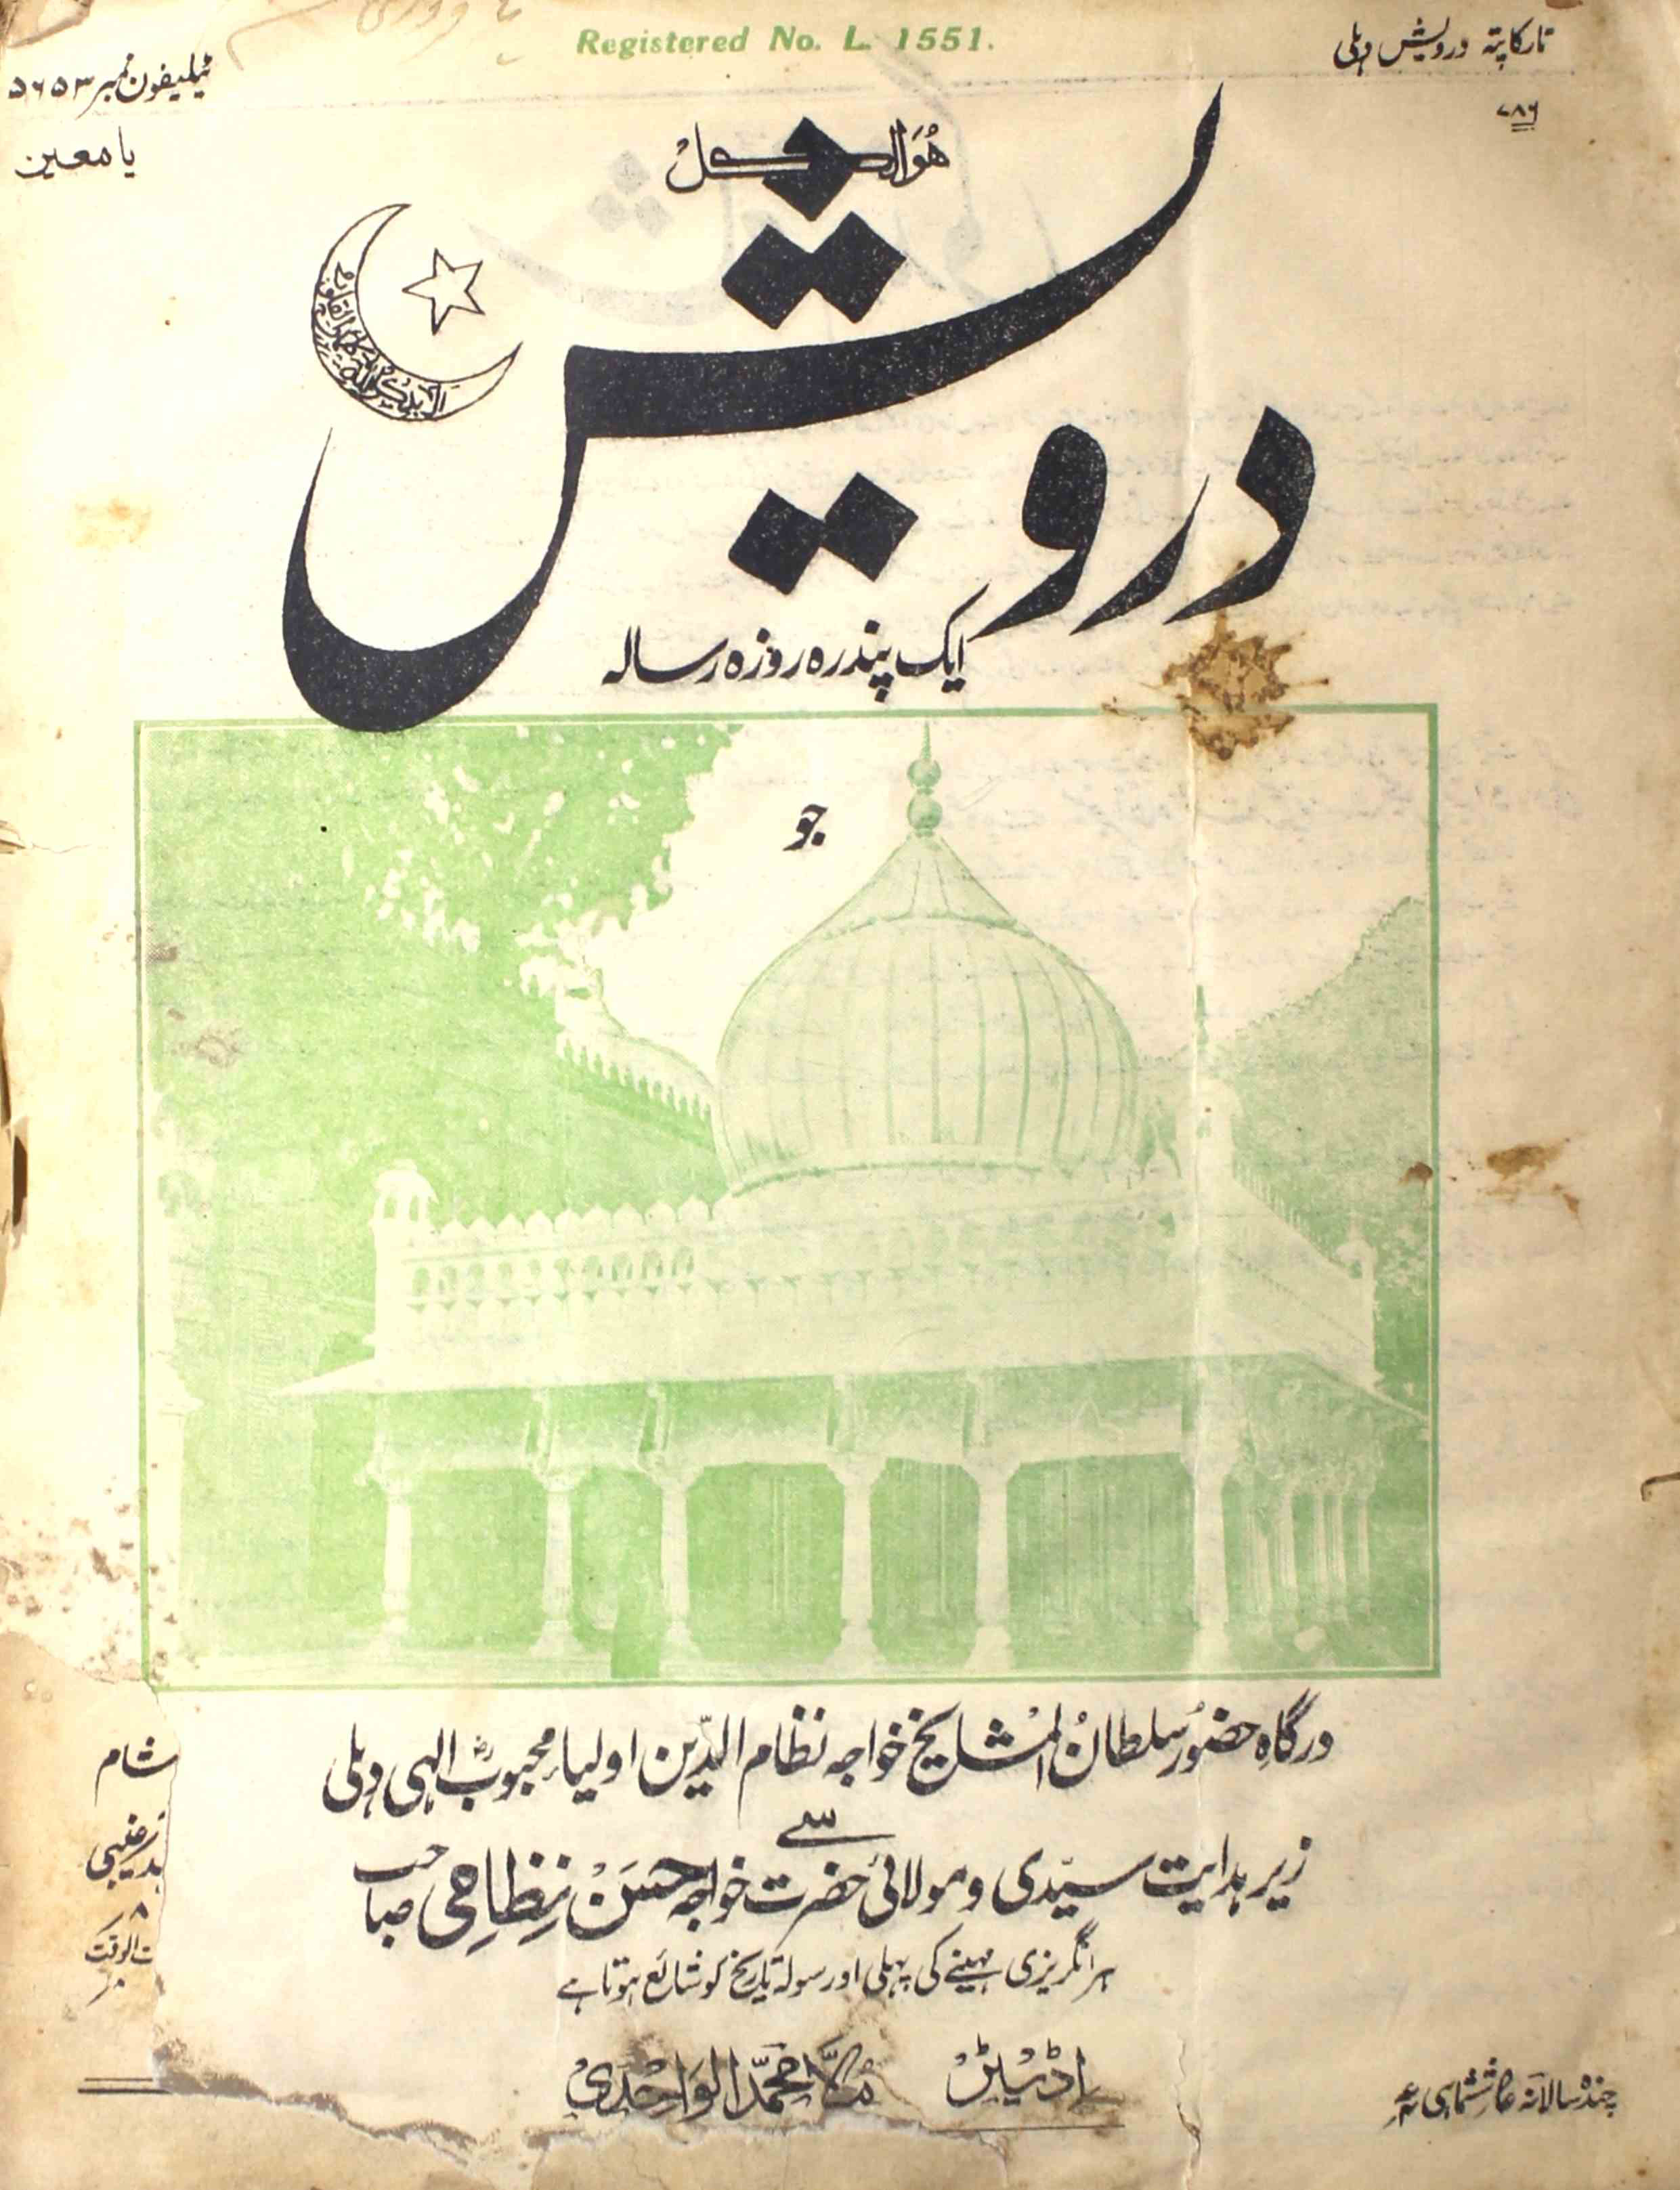 Registered No. L. 1551.
تارکا پتہ درویش دہلی
ٹیلیفون نمبر ۵۶۵۳
۷۸۶
یا معین
ھُوَالکُل
درویش
ایک پندرہ روزہ رسالہ
جو
درگاہِ حضورُ سلطانُ المشایخ خواجہ نظام الدّین اولیاء محبوبِ الٰہی دہلی
سے
زیر ہدایت سیّدی و مولائی حضرت خواجہ حسن نظامی صاحب
ہر انگریزی مہینے کی پہلی اور سولہ تاریخ کو شائع ہوتا ہے
اڈیٹر مُلّا محمّد الواحدی
چندہ سالانہ ششماہی
شام